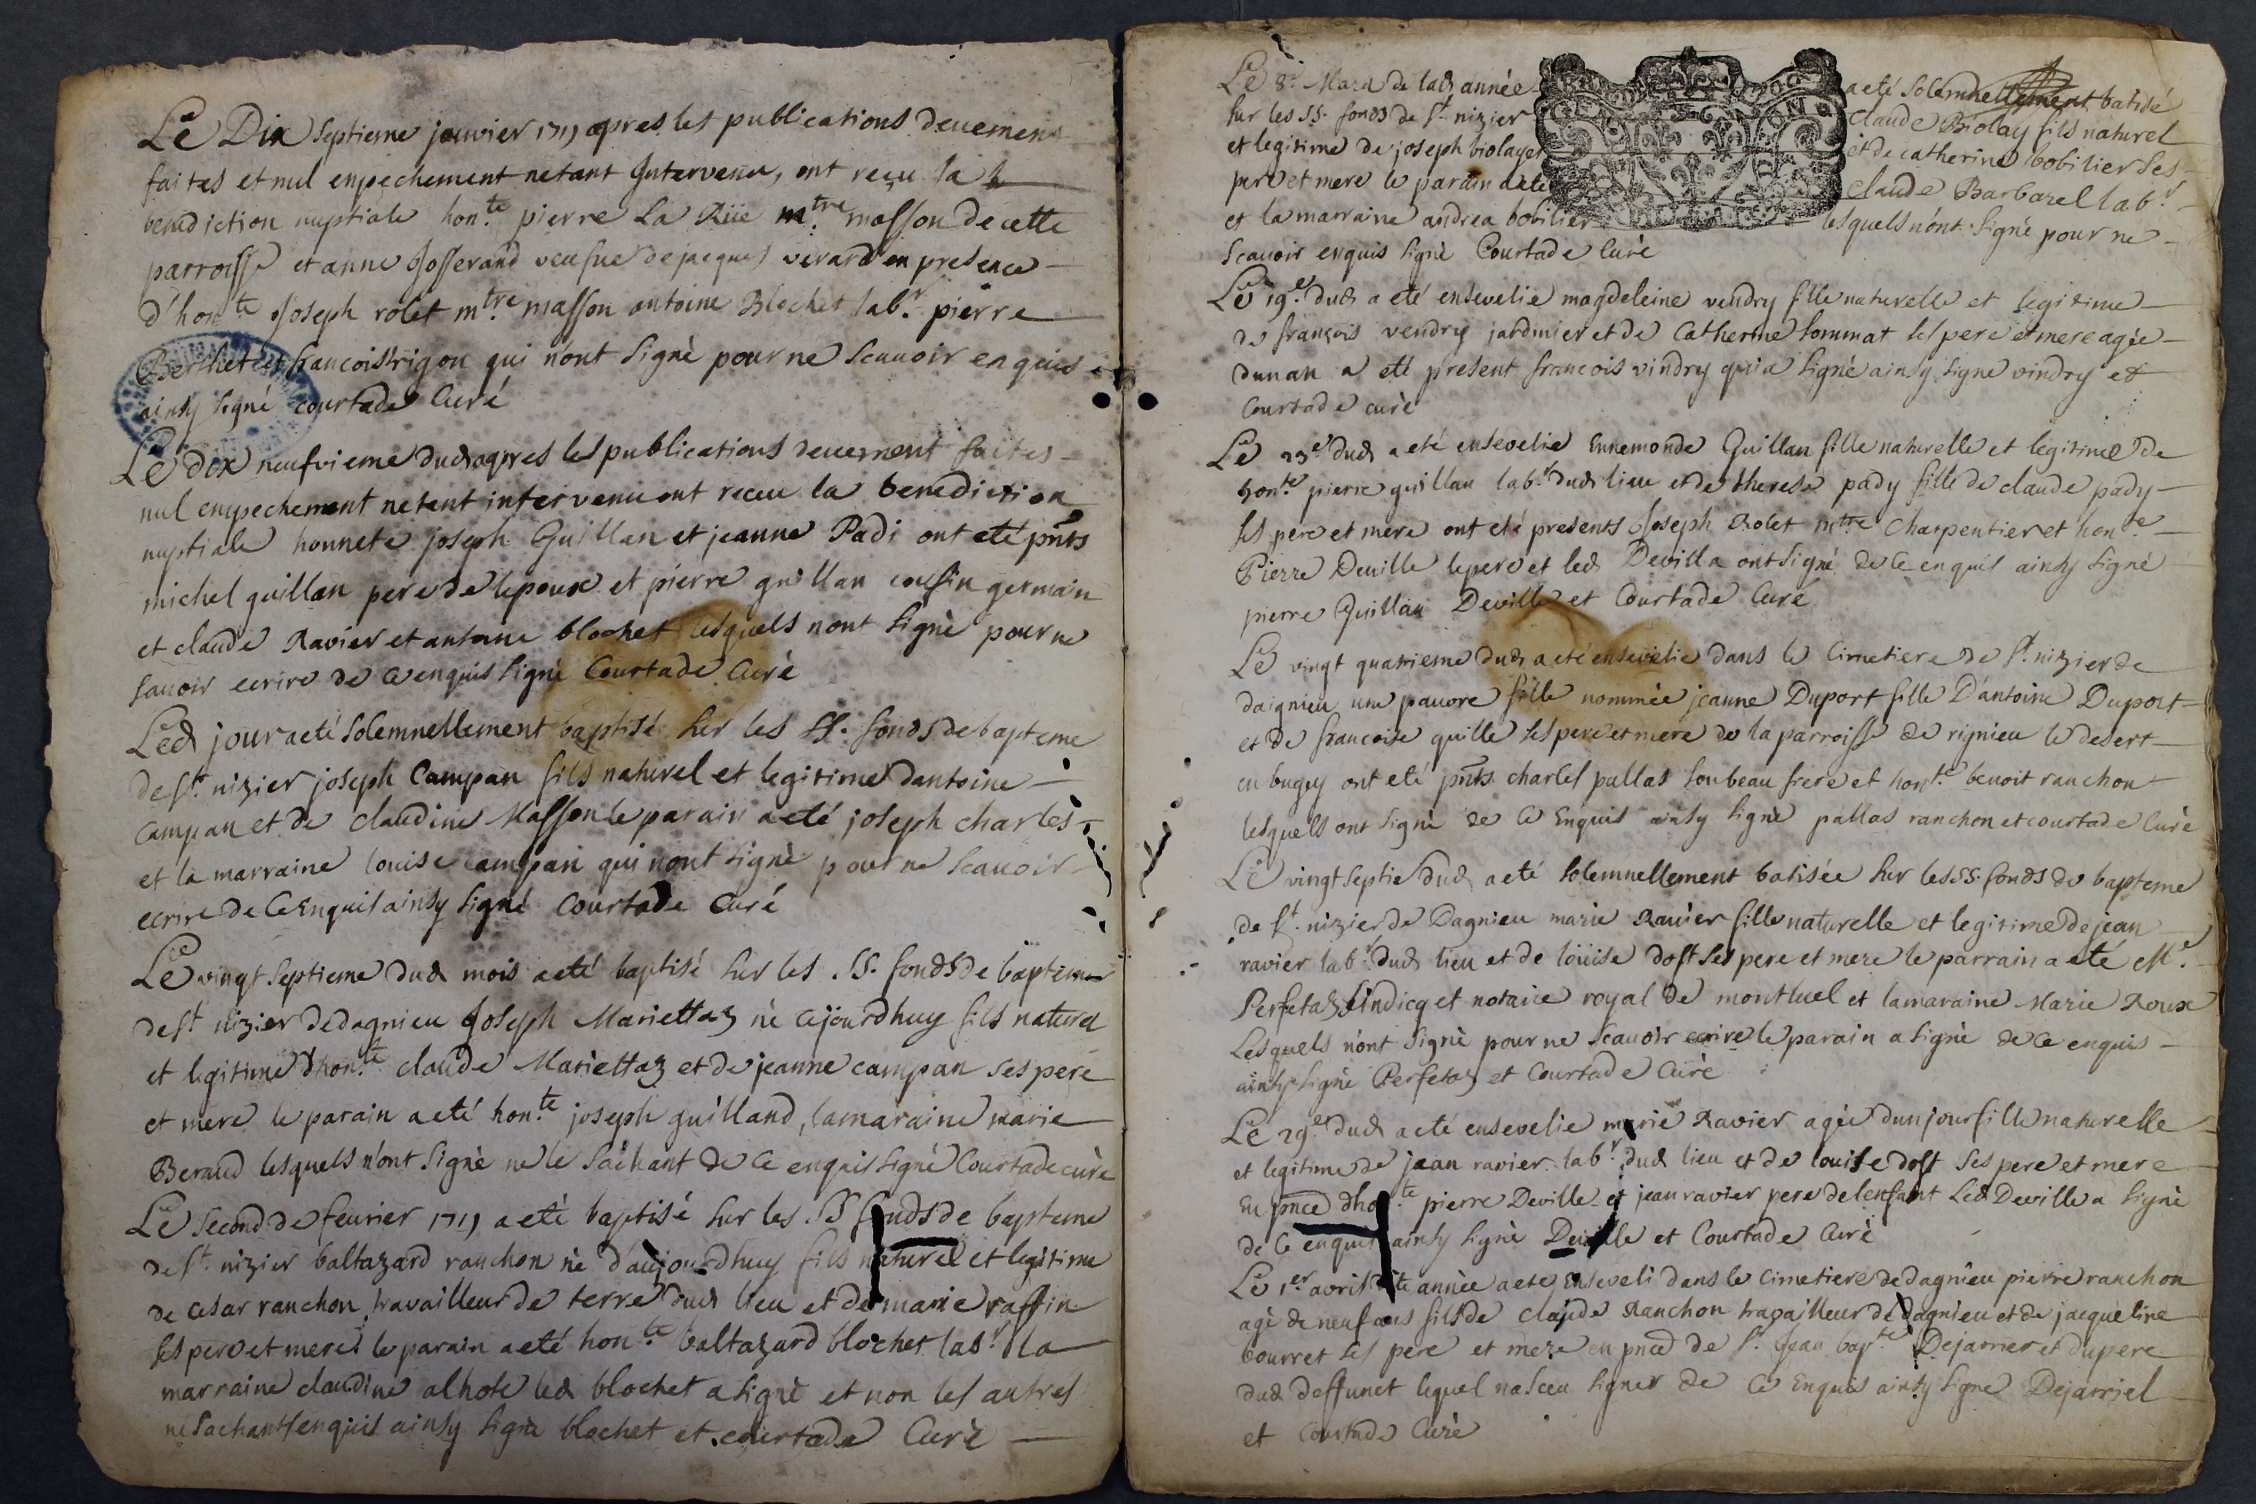 Le Dix Septieme janvier 1719 apres les publications deuemens
faites et nul enpechement netant Intervenu, ont reçu la
benediction nuptiale hon.te pierre La Rüe m.tre masson de cette
parroisse et anne Josserand veusue de jacques virard en presence
d'hon.te Joseph rolet m.tre masson antoine Blochet lab.r pierre
Berthet et francois trigou qui n'ont signè pour ne scauoir enquis
ainsy signé courtade Curé
Le dix neufvieme dud apres les publications deuement faites
nul empechement netent intervenu ont receu la benediction
nuptiale honnete joseph Guillan et jeanne Padi ont eté pñts
michel guillan pere de lepoux et pierre guillan cousin germain
et claude Ravier et antoine blochet lesquels nont signè pour ne
sauoir ecrire de ce enquis signè Courtade Curè
Led jour a eté solemnellement baptisé sur les SS. fonds de bapteme
de st. nizier joseph Campan fils naturel et legitime dantoine
campan et de claudine Masson le parain a eté joseph charles
et la marraine louise campan qui nont signè pour ne scauoir
ecrire de ce Enquis ainsy signé Courtade Curé
Le vingt septieme dud mois a eté baptisé sur les SS. fonds de bapteme
de st nizier de dagnieu Joseph Mariettaz nè cejourdhuy fils naturel
et legitime d'hon.te claude Mariettaz et de jeanne campan ses pere
et mere le parain a eté hon.te joseph guilland, la maraine marie
Beraud lesquels n'ont signè ne le sachant de ce enquis signé Courtade curè
Le second de fevrier 1719 a etè baptisé sur les SS fonds de bapteme
de st. nizier baltazard ranchon nè d'aujourdhuy fils naturel et legitime
de cesar ranchon travailleur de terre dud lieu et de marie raffin
ses pere et mere le parain a eté hon.te baltazard blochet lab.r la
marraine claudine alhote led blochet a signè et non les autres
ne sachants enquis ainsy signè blochet et courtade Curè
Le 8.e Mars de lad année a eté solemnellement batisé
sur les SS. fonds de st. nizier Claude Biolay fils naturel
et legitime de joseph biolay et de catherine bobilier ses
pere et mere le parain a eté claude Barbarel lab.r
et la marraine andrea bobilier lesquels n'ont signé pour ne
scauoir enquis signè Courtade Curè
Le 19.e dud a eté ensevelie magdeleine vendry fille naturelle et legitime
de françois vendry jardinier et de Catherine sommat ses pere et mere agée
dun an a eté present francois vindry qui a signè ainsy signe vindry et
Courtade curè
Le 23.e dud a eté ensevelie Ennemonde Guillan fille naturelle et legitime de
hon.te pierre guillan lab.r dud lieu et de therese pady fille de claude pady
ses pere et mere ont eté presents Joseph Rolet m.tre Charpentier et hon.te
Pierre Deville le pere et led Devilla ont signé de ce enquis ainsy signé
pierre Guillan Deville et Courtade Curé
Le vingt quatrieme dud a eté ensevelie dans le Cimetiere de st. nizier de
daignieu une pauvre fille nommée jeanne Duport fille D'antoine Duport
et de francoise quille ses pere et mere de la parroisse de rignieu le desert
en bugey ont eté pñts charles pallas son beau frere et hon.te benoit ranchon
lesquels ont signè de ce Enquis ainsy signè pallas ranchon et courtade Curè
Le vingt septie dud a eté solemnellement batisée sur les SS. fonds de bapteme
de st. nizier de Dagnieu marie Ravier fille naturelle et legitime de jean
ravier lab.r dud lieu et de loüise dost ses pere et mere le parrain a eté M.e
Perfetaz sindicq et notaire royal de montluel et la maraine Marie Roux
Lesquels n'ont signè pour ne scauoir ecrire le parain a signè de ce enquis
ainsy signè Perfetaz et Courtade Curè
Le 29.e dud a eté ensevelie marie Ravier agèe dun jour fille naturelle
et legitime de jean ravier lab.r dud lieu et de louise dost ses pere et mere
en pnce dho.te pierre Deville et jean ravier pere de lenfant Led Deville a signè
de ce enquis ainsy signè Deville et Courtade Curè
Le 1.er avril dte annèe a ete enseveli dans le cimetiere de dagnieu pierre ranchon
agè de neuf ans fils de claude Ranchon travailleur de dagnieu et de jacqueline
bourret ses pere et mere en pnce de Sr. jean bap.te Dejarrier et du pere
dud deffunct lequel na sceu signer de ce Enquis ainsy signe Dejarriel
et Courtade Curè